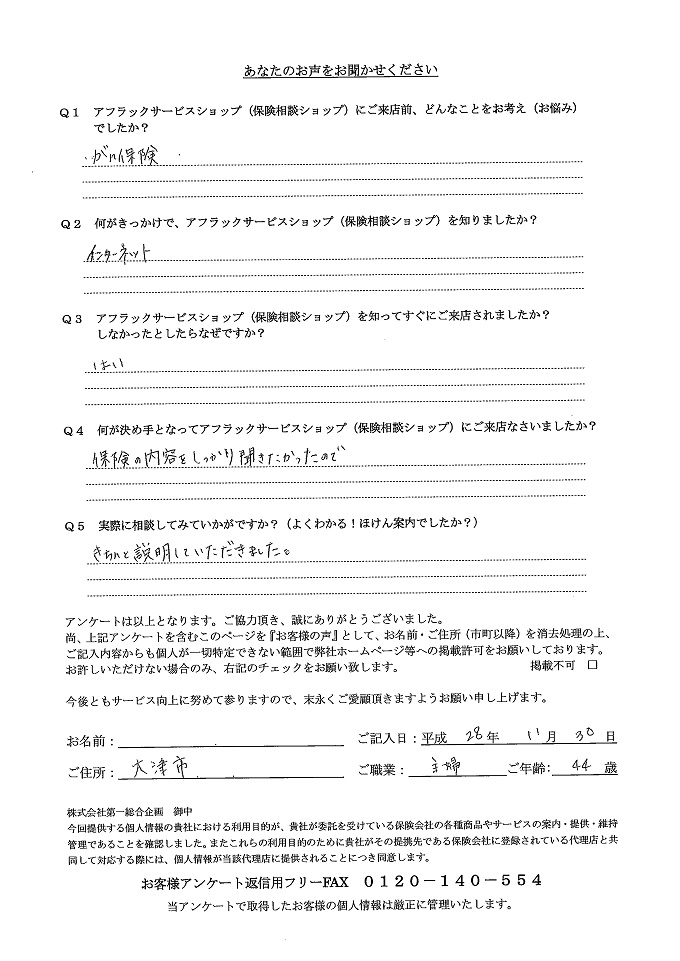 あなたのお声をお聞かせください
Q1 アフラックサービスショップ（保険相談ショップ）にご来店前、どんなことをお考え（お悩み）
でしたか？
・がん保険
Q2 何がきっかけで、アフラックサービスショップ（保険相談ショップ）を知りましたか？
インターネット
Q3 アフラックサービスショップ（保険相談ショップ）を知ってすぐにご来店されましたか？
しなかったとしたらなぜですか？
はい
Q4 何が決め手となってアフラックサービスショップ（保険相談ショップ）にご来店なさいましたか？
保険の内容をしっかり聞きたかったので
Q5 実際に相談してみていかがですか？（よくわかる！ほけん案内でしたか？）
きちんと説明していただきました。
アンケートは以上となります。ご協力頂き、誠にありがとうございました。
尚、上記アンケートを含むこのページを『お客様の声』として、お名前・ご住所（市町以降）を消去処理の上、
ご記入内容からも個人が一切特定できない範囲で弊社ホームページ等への掲載許可をお願いしております。
お許しいただけない場合のみ、右記のチェックをお願い致します。 掲載不可 □
今後ともサービス向上に努めて参りますので、末永くご愛顧頂きますようお願い申し上げます。
お名前： ご記入日：平成 28 年 11 月 30 日
ご住所： 大津市 ご職業： 主婦 ご年齢： 44 歳
株式会社第一総合企画 御中
今回提供する個人情報の貴社における利用目的が、貴社が委託を受けている保険会社の各種商品やサービスの案内・提供・維持
管理であることを確認しました。またこれらの利用目的のために貴社がその提携先である保険会社に登録されている代理店と共
同して対応する際には、個人情報が当該代理店に提供されることにつき同意します。
お客様アンケート返信用フリーFAX 0120－140－554
当アンケートで取得したお客様の個人情報は厳正に管理いたします。